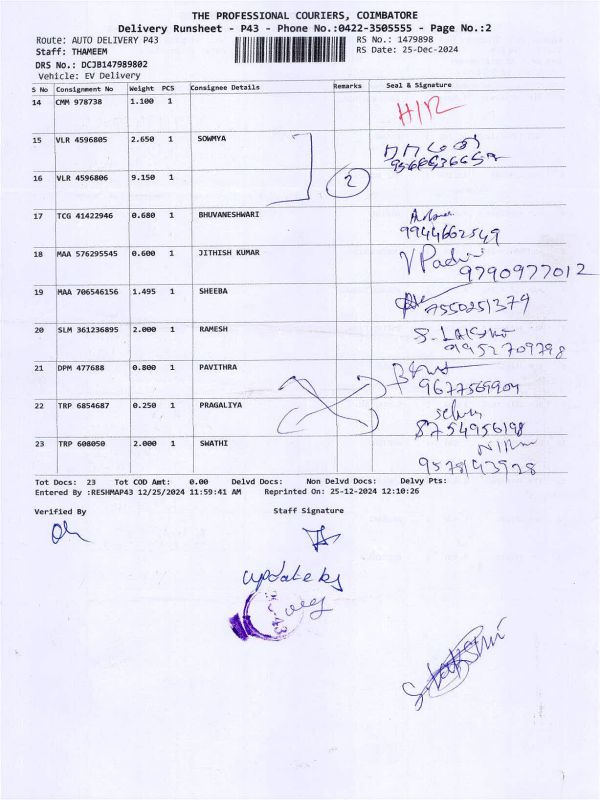 THE PROFESSIONAL COURIERS, COIMBATORE
Delivery Runsheet - P43 - Phone No.:0422-3505555 - Page No.:2
Route: AUTO DELIVERY P43 RS No.: 1479898
Staff: THAMEEM RS Date: 25-Dec-2024
DRS No.: DCJB147989802
Vehicle: EV Delivery
S No Consignment No Weight PCS Consignee Details Remarks Seal & Signature
14 CMM 978738 1.100 1
15 VLR 4596805 2.650 1 SOWMYA
16 VLR 4596806 9.150 1 2
17 TCG 41422946 0.680 1 BHUVANESHWARI
9944662549
18 MAA 576295545 0.600 1 JITHISH KUMAR
9790977012
19 MAA 706546156 1.495 1 SHEEBA 7550251379
20 SLM 361236895 2.000 1 RAMESH
9952709798
21 DPM 477688 0.800 1 PAVITHRA
22 TRP 6854687 0.250 1 PRAGALIYA
8754956198
23 TRP 608050 2.000 1 SWATHI
Tot Docs: 23 Tot COD Amt: 0.00 Delvd Docs: Non Delvd Docs: Delvy Pts:
Entered By :RESHMAP43 12/25/2024 11:59:41 AM Reprinted On: 25-12-2024 12:10:26
Verified By Staff Signature